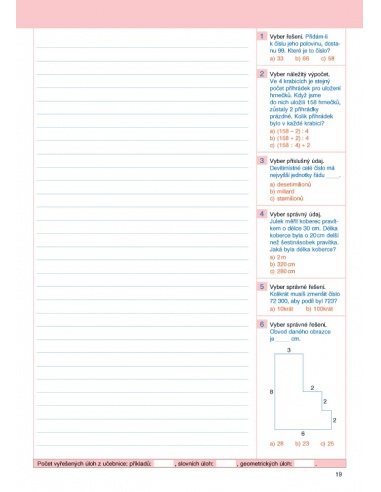 1 Vyber řešení. Přidám-li
k číslu jeho polovinu, dosta-
nu 99. Které je to číslo?
a) 33 b) 66 c) 58
2 Vyber náležitý výpočet.
Ve 4 krabicích je stejný
počet přihrádek pro uložení
hrnečků. Když jsme
do nich uložili 158 hrnečků,
zůstaly 2 přihrádky
prázdné. Kolik přihrádek
bylo v každé krabici?
a) (158 – 2) : 4
b) (158 + 2) : 4
c) (158 : 4) + 2
3 Vyber příslušný údaj.
Devítimístné celé číslo má
nejvyšší jednotky řádu ____.
a) desetimilionů
b) miliard
c) stamilionů
4 Vyber správný údaj.
Julek měřil koberec pravít-
kem o délce 30 cm. Délka
koberce byla o 20 cm delší
než šestinásobek pravítka.
Jaká byla délka koberce?
a) 2 m
b) 320 cm
c) 280 cm
5 Vyber správné řešení.
Kolikrát musíš zmenšit číslo
72 300, aby podíl byl 723?
a) 10krát b) 100krát
6 Vyber správné řešení.
Obvod daného obrazce
je ____ cm.
3
8
2
2
2
6
a) 28 b) 23 c) 25
Počet vyřešených úloh z učebnice: příkladů: , slovních úloh: , geometrických úloh: .
19